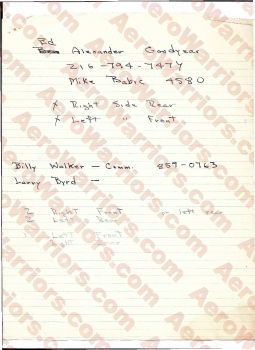 Ed
Alexander Goodyear
216-794-7474
Mike Babic 4580
x Right Side Rear
x Left " Front
Billy Walker - Comm. 859-0763
Larry Byrd -
2 Right Front or left rear
2 Left Rear
Left Front
Right Rear
AeroWarriors.com